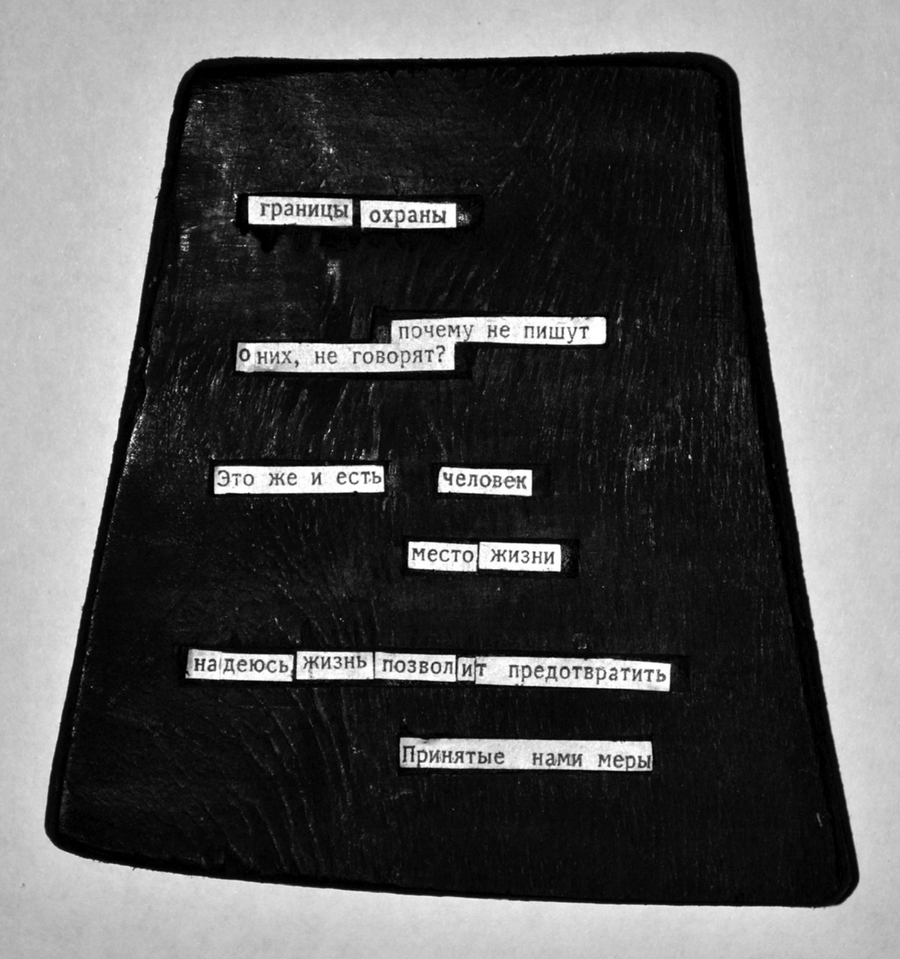 границы охраны
почему не пишут
о них, не говорят?
Это же и есть человек
место жизни
надеюсь жизнь позволит предотвратить
Принятые нами меры